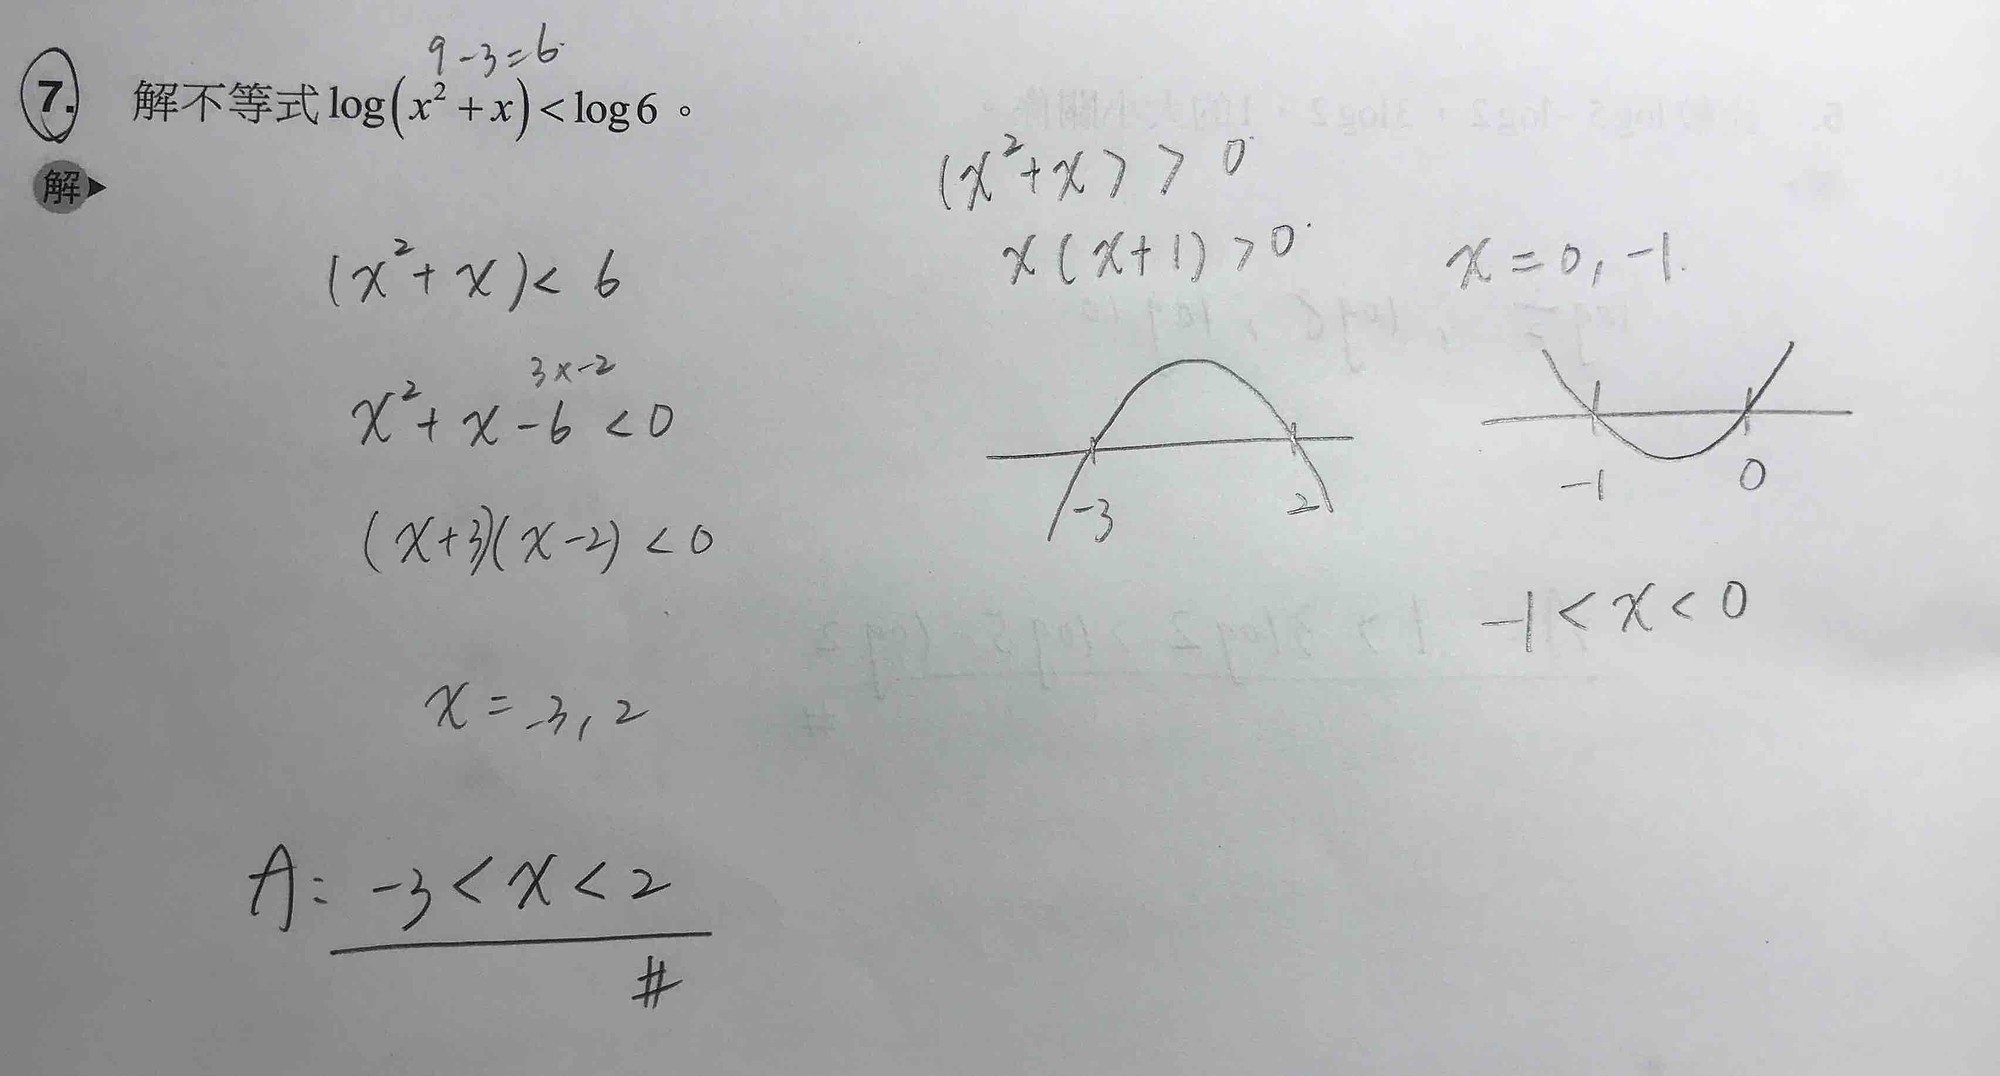 9-3=6
7. 解不等式 log(x²+x)<log6。
解
(x²+x)<6
3x-2
x²+x-6<0
(x+3)(x-2)<0
x=-3,2
A: -3<x<2
#
(x²+x>>0
x(x+1)>0
x=0,-1
-3 2
-1 0
-1<x<0